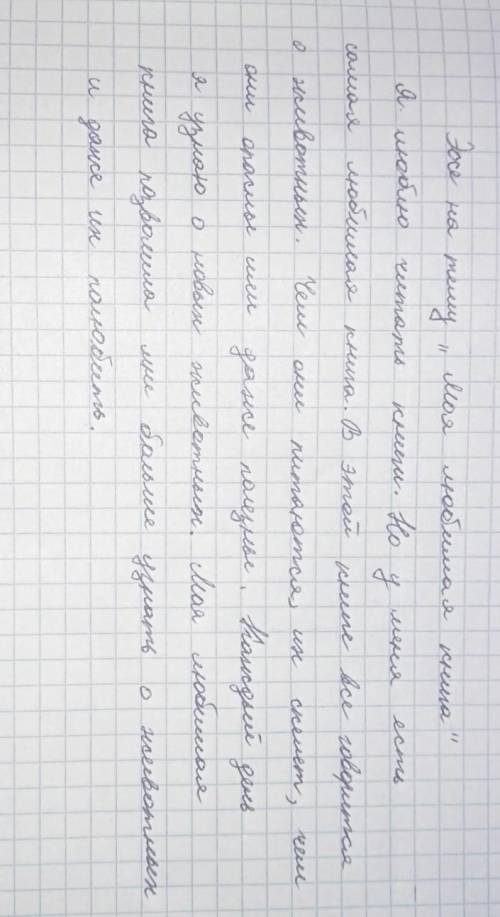 Эсе на тему „Моя любимая книга"
Я люблю читать книги. Но у меня есть
самая любимая книга. В этой книге все говорится
о животных. Чем они питаются, их скелет, чем
они опасны или даже полезны. Каждый день
я узнаю о новых животных. Моя любимая
книга позволила мне больше узнать о животных
и даже их полюбить.